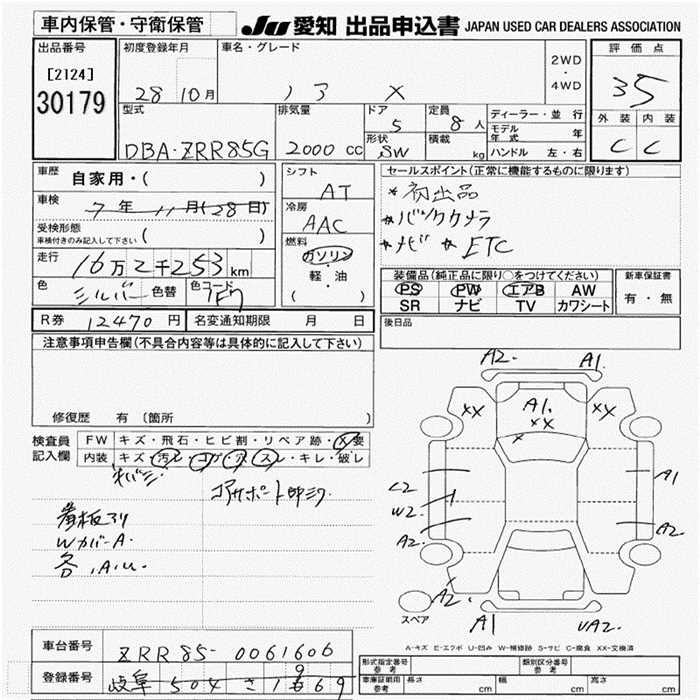 車内保管・守衛保管
JU 愛知 出品申込書 JAPAN USED CAR DEALERS ASSOCIATION
出品番号
[2124]
30179
初度登録年月
28 10月
車名・グレード
X
2WD
・
4WD
評価点
35
外装 内装
C C
型式
DBA-ZRR85G
排気量
2000 CC
ドア
5
形状
SW
定員
8人
積載
kg
ディーラー・並行
モデル年式 年
ハンドル 左・右
車歴
自家用・( )
車検
7年 11月(28日)
受検形態
車検付きのみ記入して下さい ( )
走行
16万2千253km
色
シルバー
色替
色コード
1F7
シフト
AT
冷房
AAC
燃料
ガソリン
軽・油
( )
セールスポイント(正常に機能するものに限ります)
*初出品
*バックカメラ
*ナビ * ETC
装備品(純正品に限り○をつけてください)
PS PW エアB AW
SR ナビ TV カワシート
新車保証書
有・無
R券 12470円
名変通知期限 月 日
後日品
注意事項申告欄(不具合内容等は具体的に記入して下さい)
修復歴 有 (箇所 )
検査員
記入欄
FW キズ・飛石・ヒビ割・リペア跡・X要
内装 キズ・汚レ・コゲ・穴・スレ・キレ・破レ
コアサポート
看板アリ
WカバーA
各.A.U.
A2. A1
XX
A1.
XX
XX
X
C2
W2
A2.
A1
A2.
A2.
スペア
A1
UA2.
A-キズ E-エクボ U-凹み W-補修跡 S-サビ C-腐食 XX-交換済
車台番号
ZRR85-0061606
登録番号
岐阜 504 さ
形式指定番号
参考
類別区分番号
参考
車庫証明用
参考
長さ cm
幅 cm
高さ cm